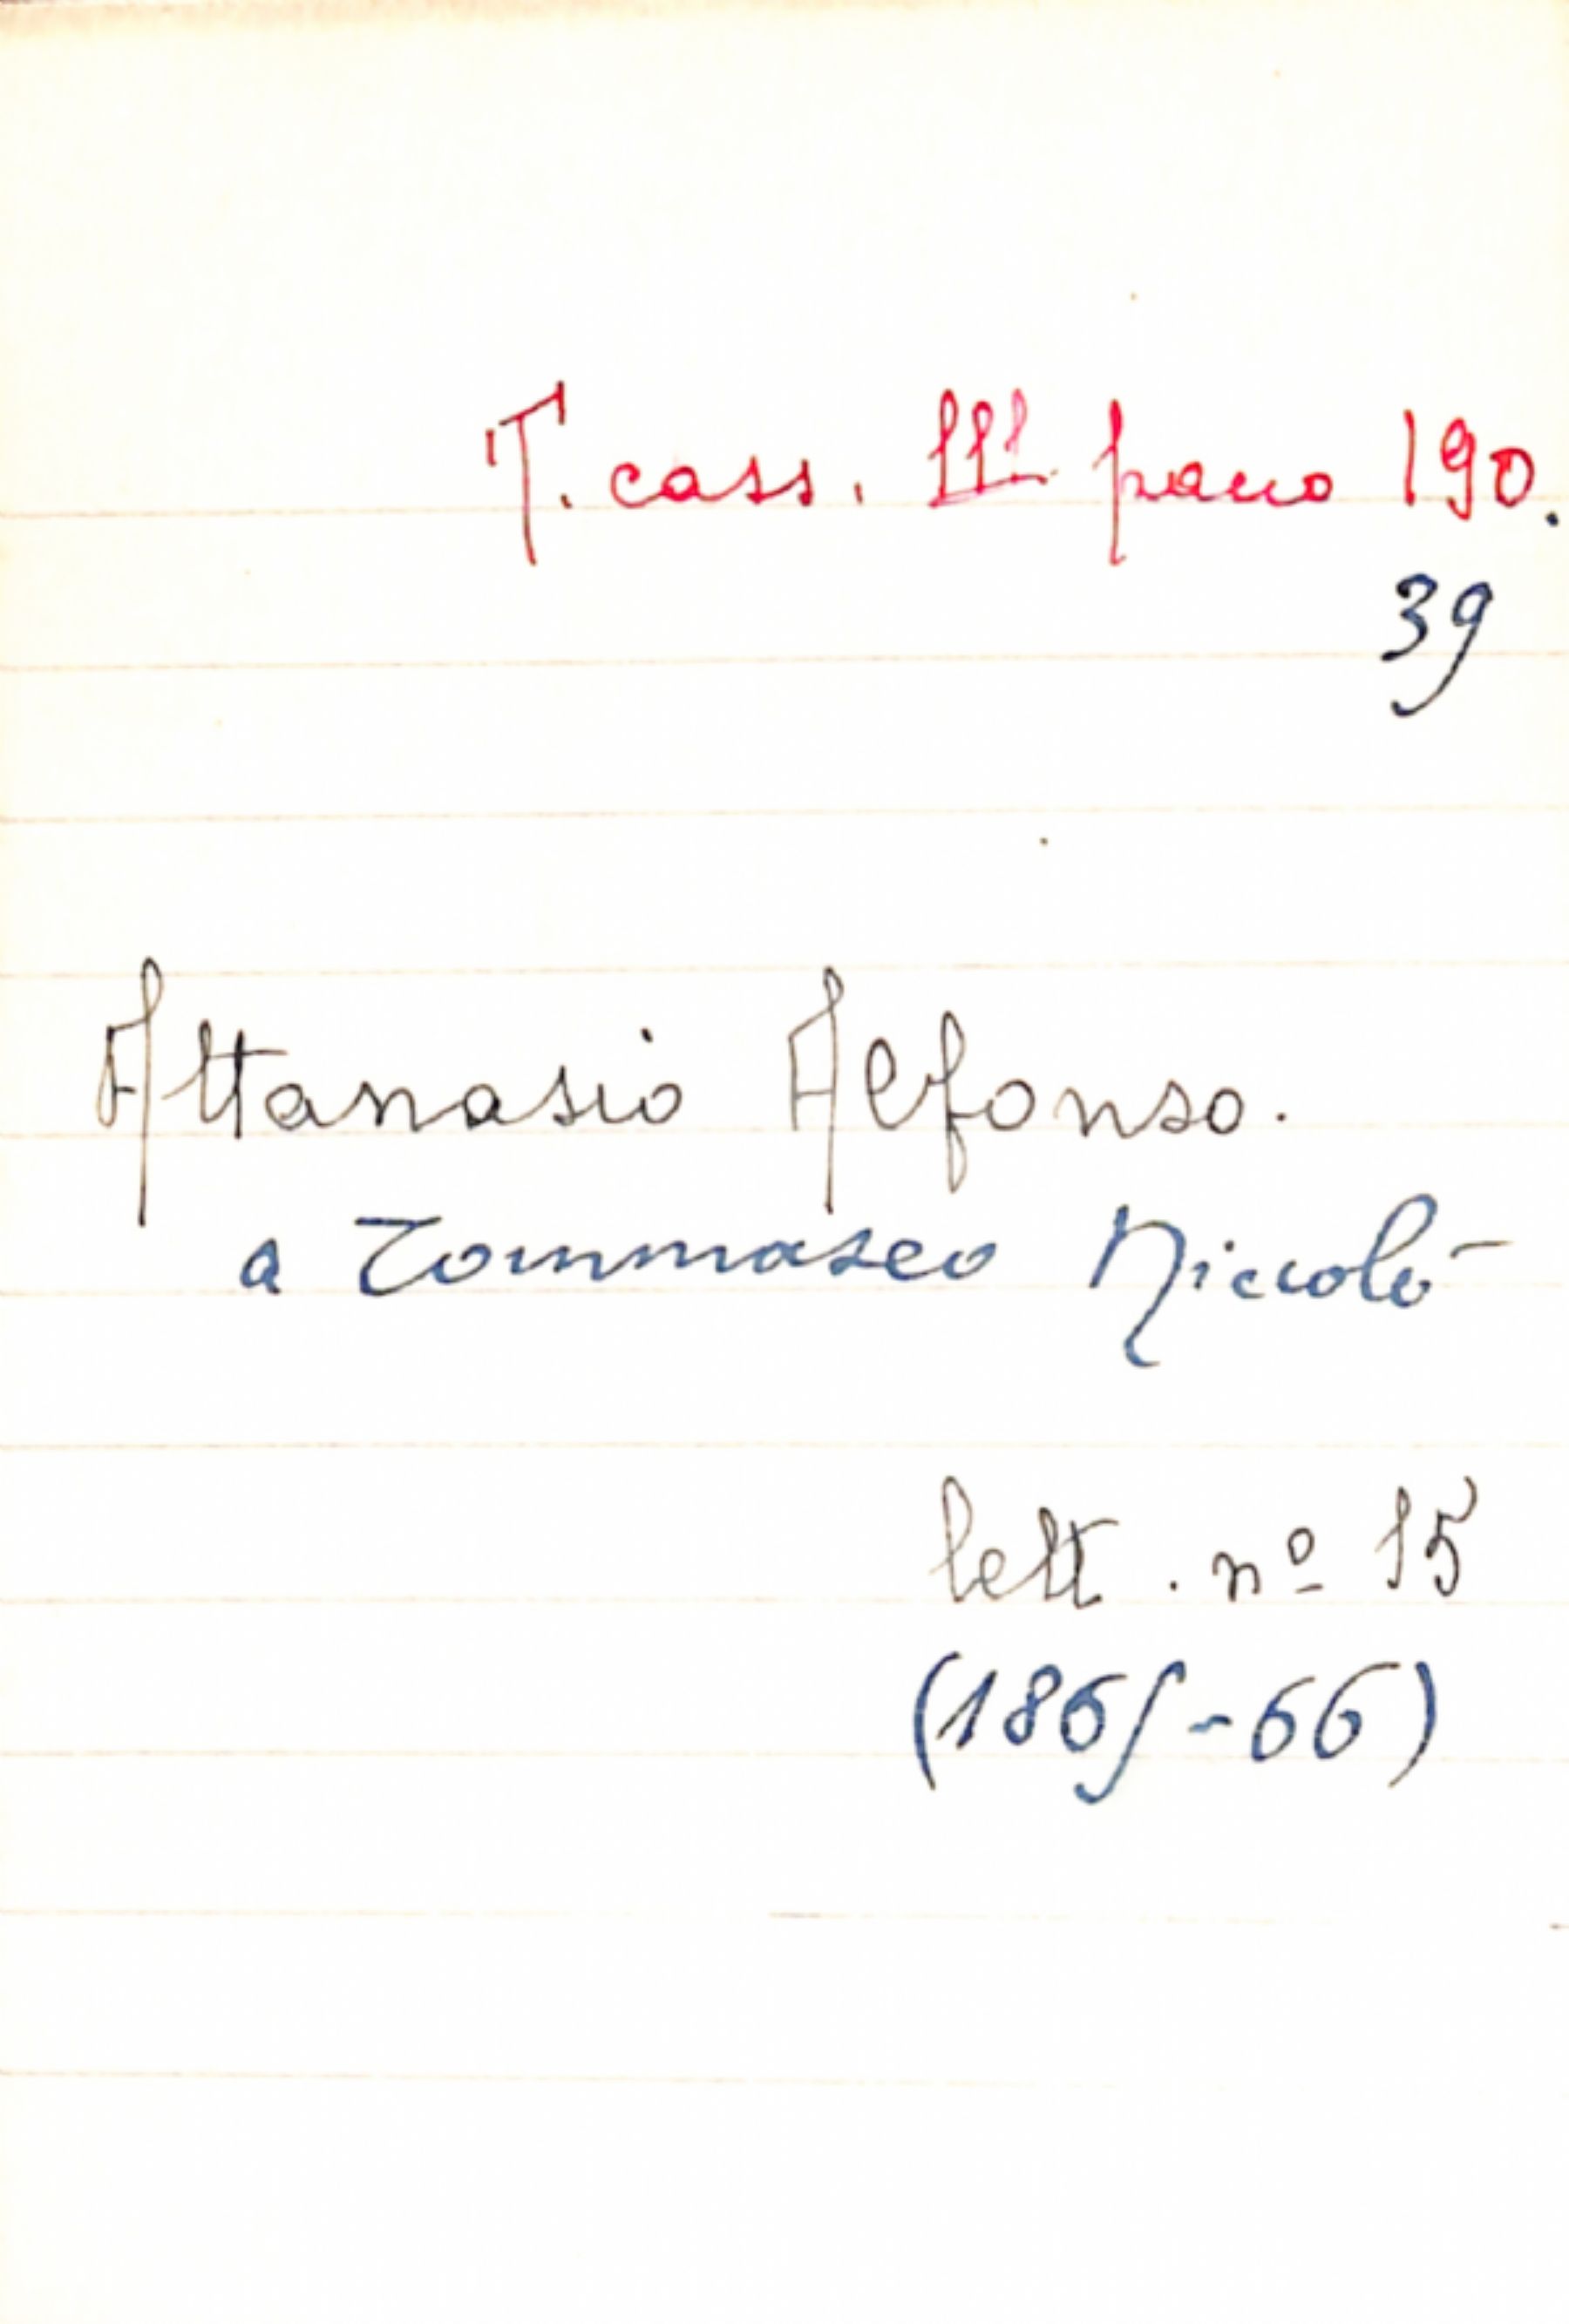 T. cass. III pacco 190.
39
Attanasio Alfonso.
a Tommaseo Niccolò
lett. nº 15
(1865-66)